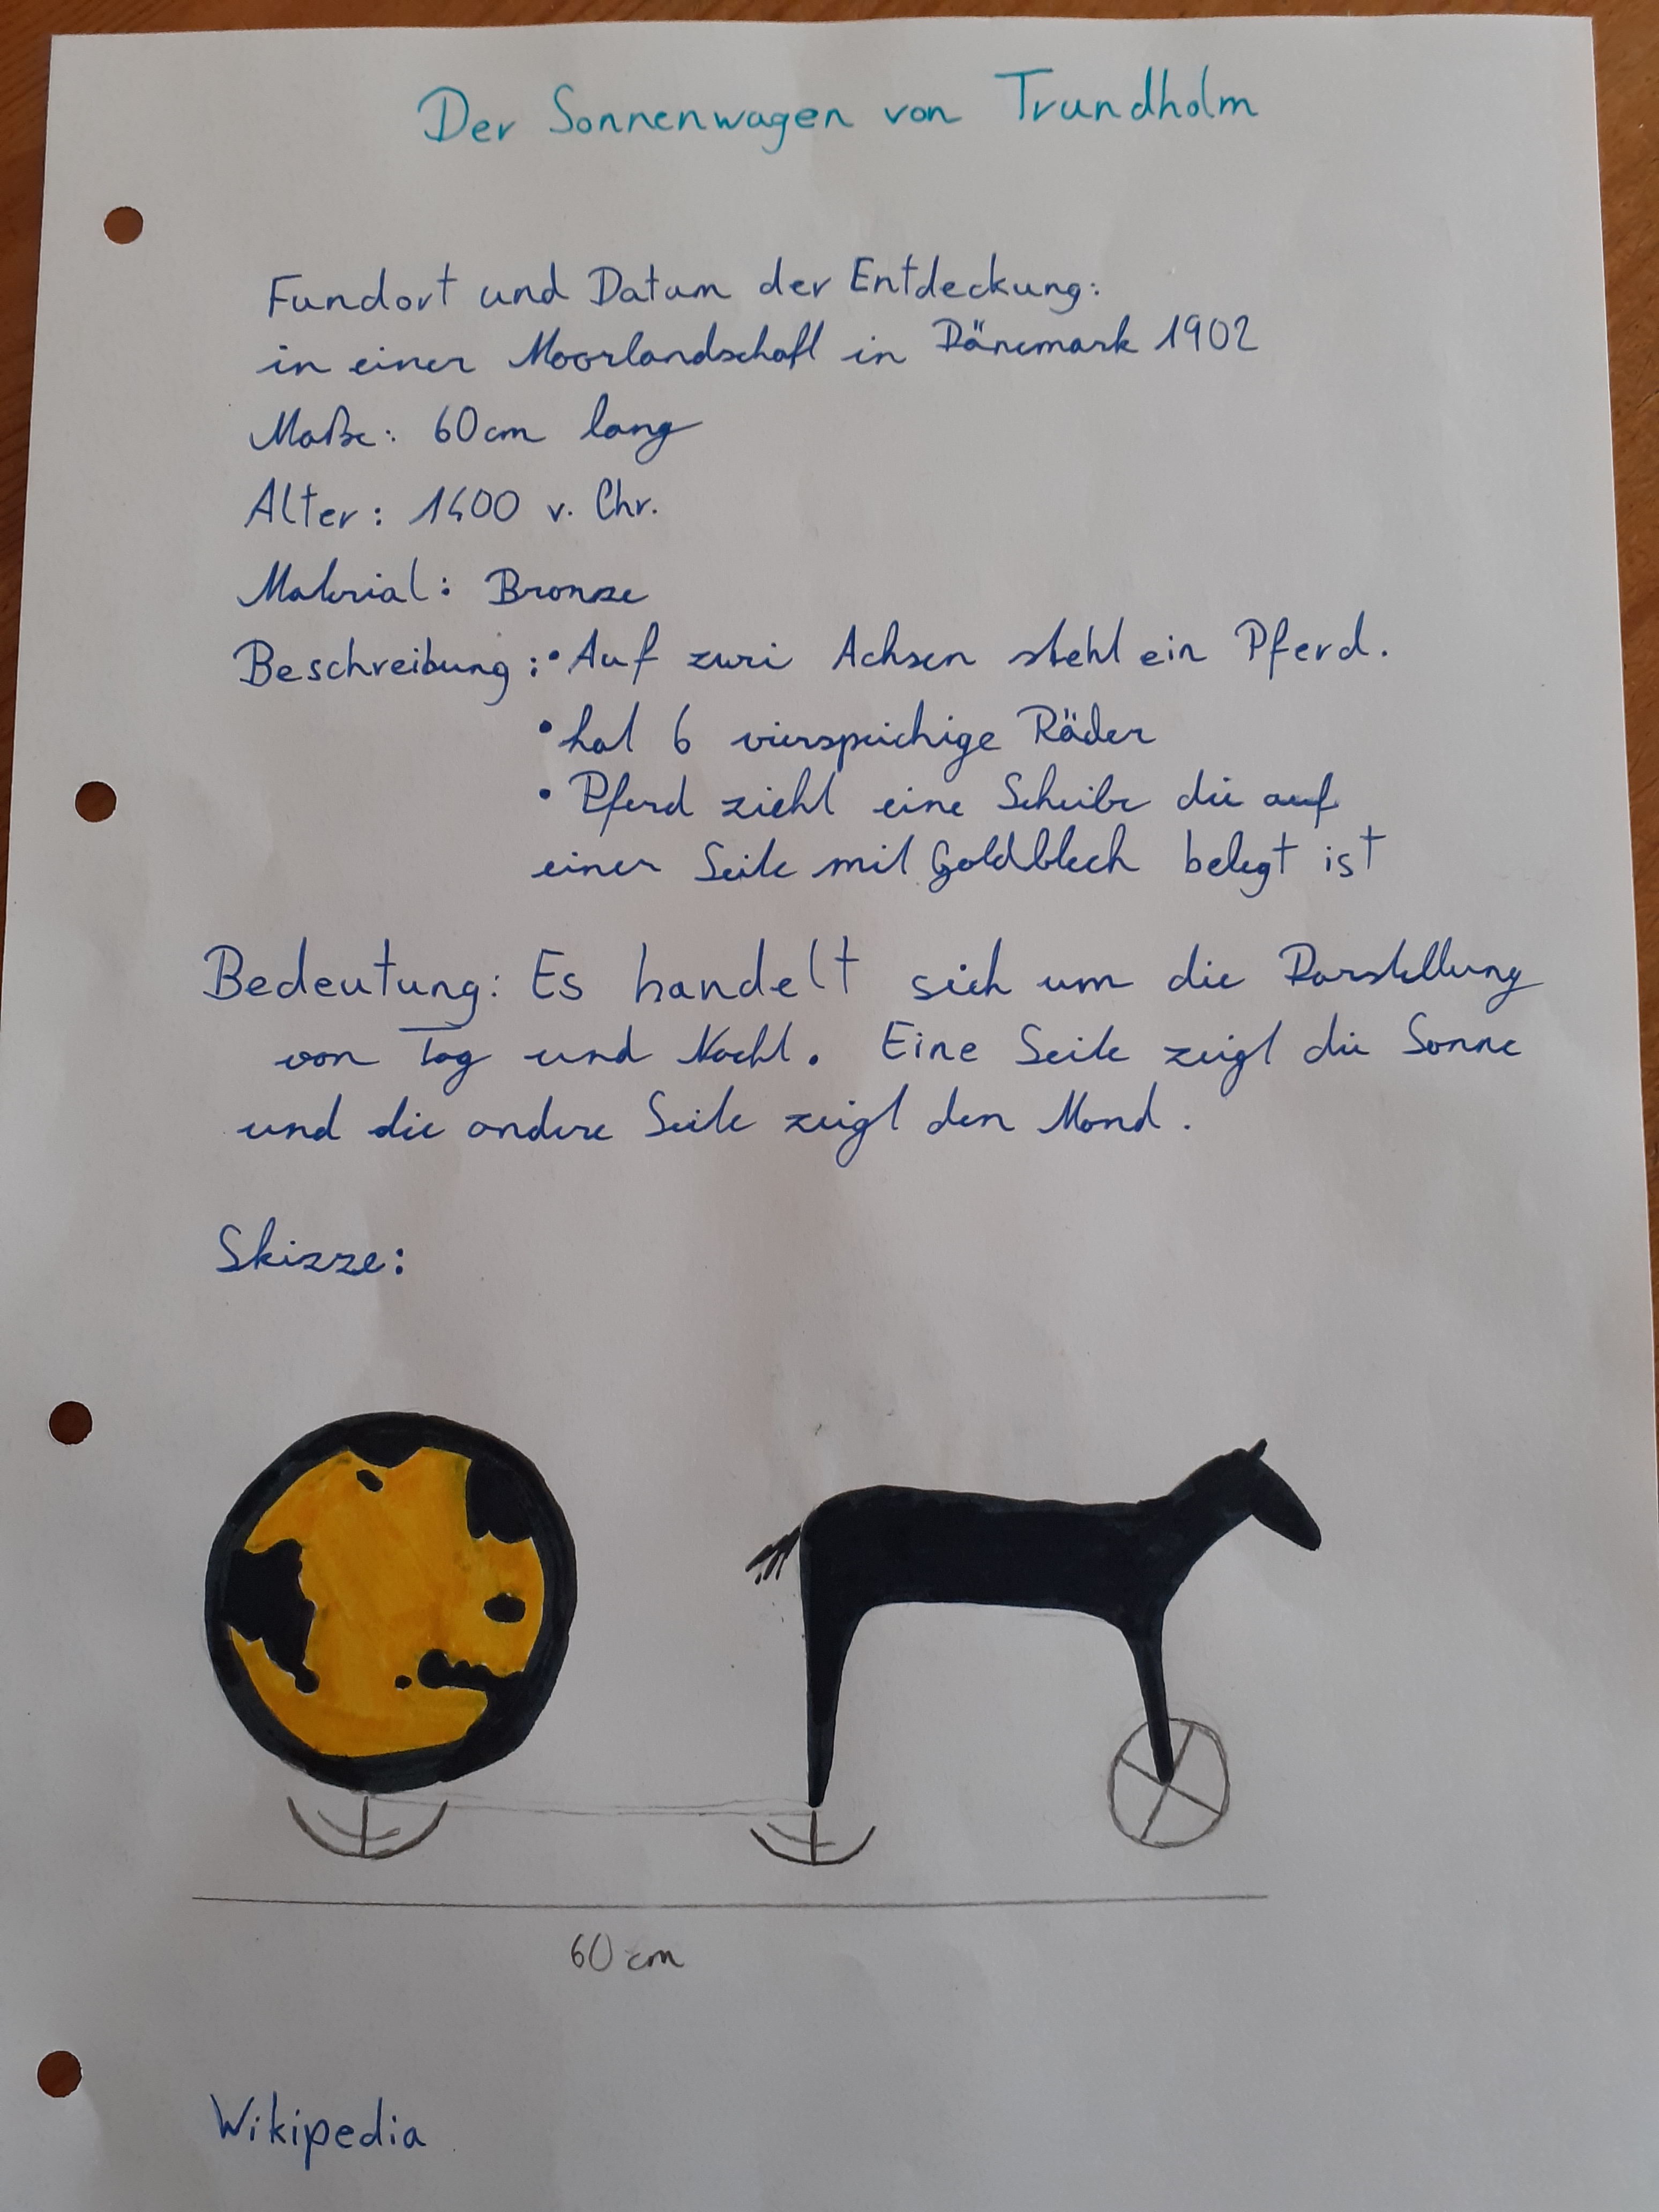 Der Sonnenwagen von Trundholm
Fundort und Datum der Entdeckung:
in einer Moorlandschaft in Dänemark 1902
Maße: 60cm lang
Alter: 1400 v. Chr.
Material: Bronze
Beschreibung: • Auf zwei Achsen steht ein Pferd.
• hat 6 vierspeichige Räder
• Pferd zieht eine Scheibe die auf
einer Seite mit Goldblech belegt ist
Bedeutung: Es handelt sich um die Darstellung
von Tag und Nacht. Eine Seite zeigt die Sonne
und die andere Seite zeigt den Mond.
Skizze:
60 cm
Wikipedia